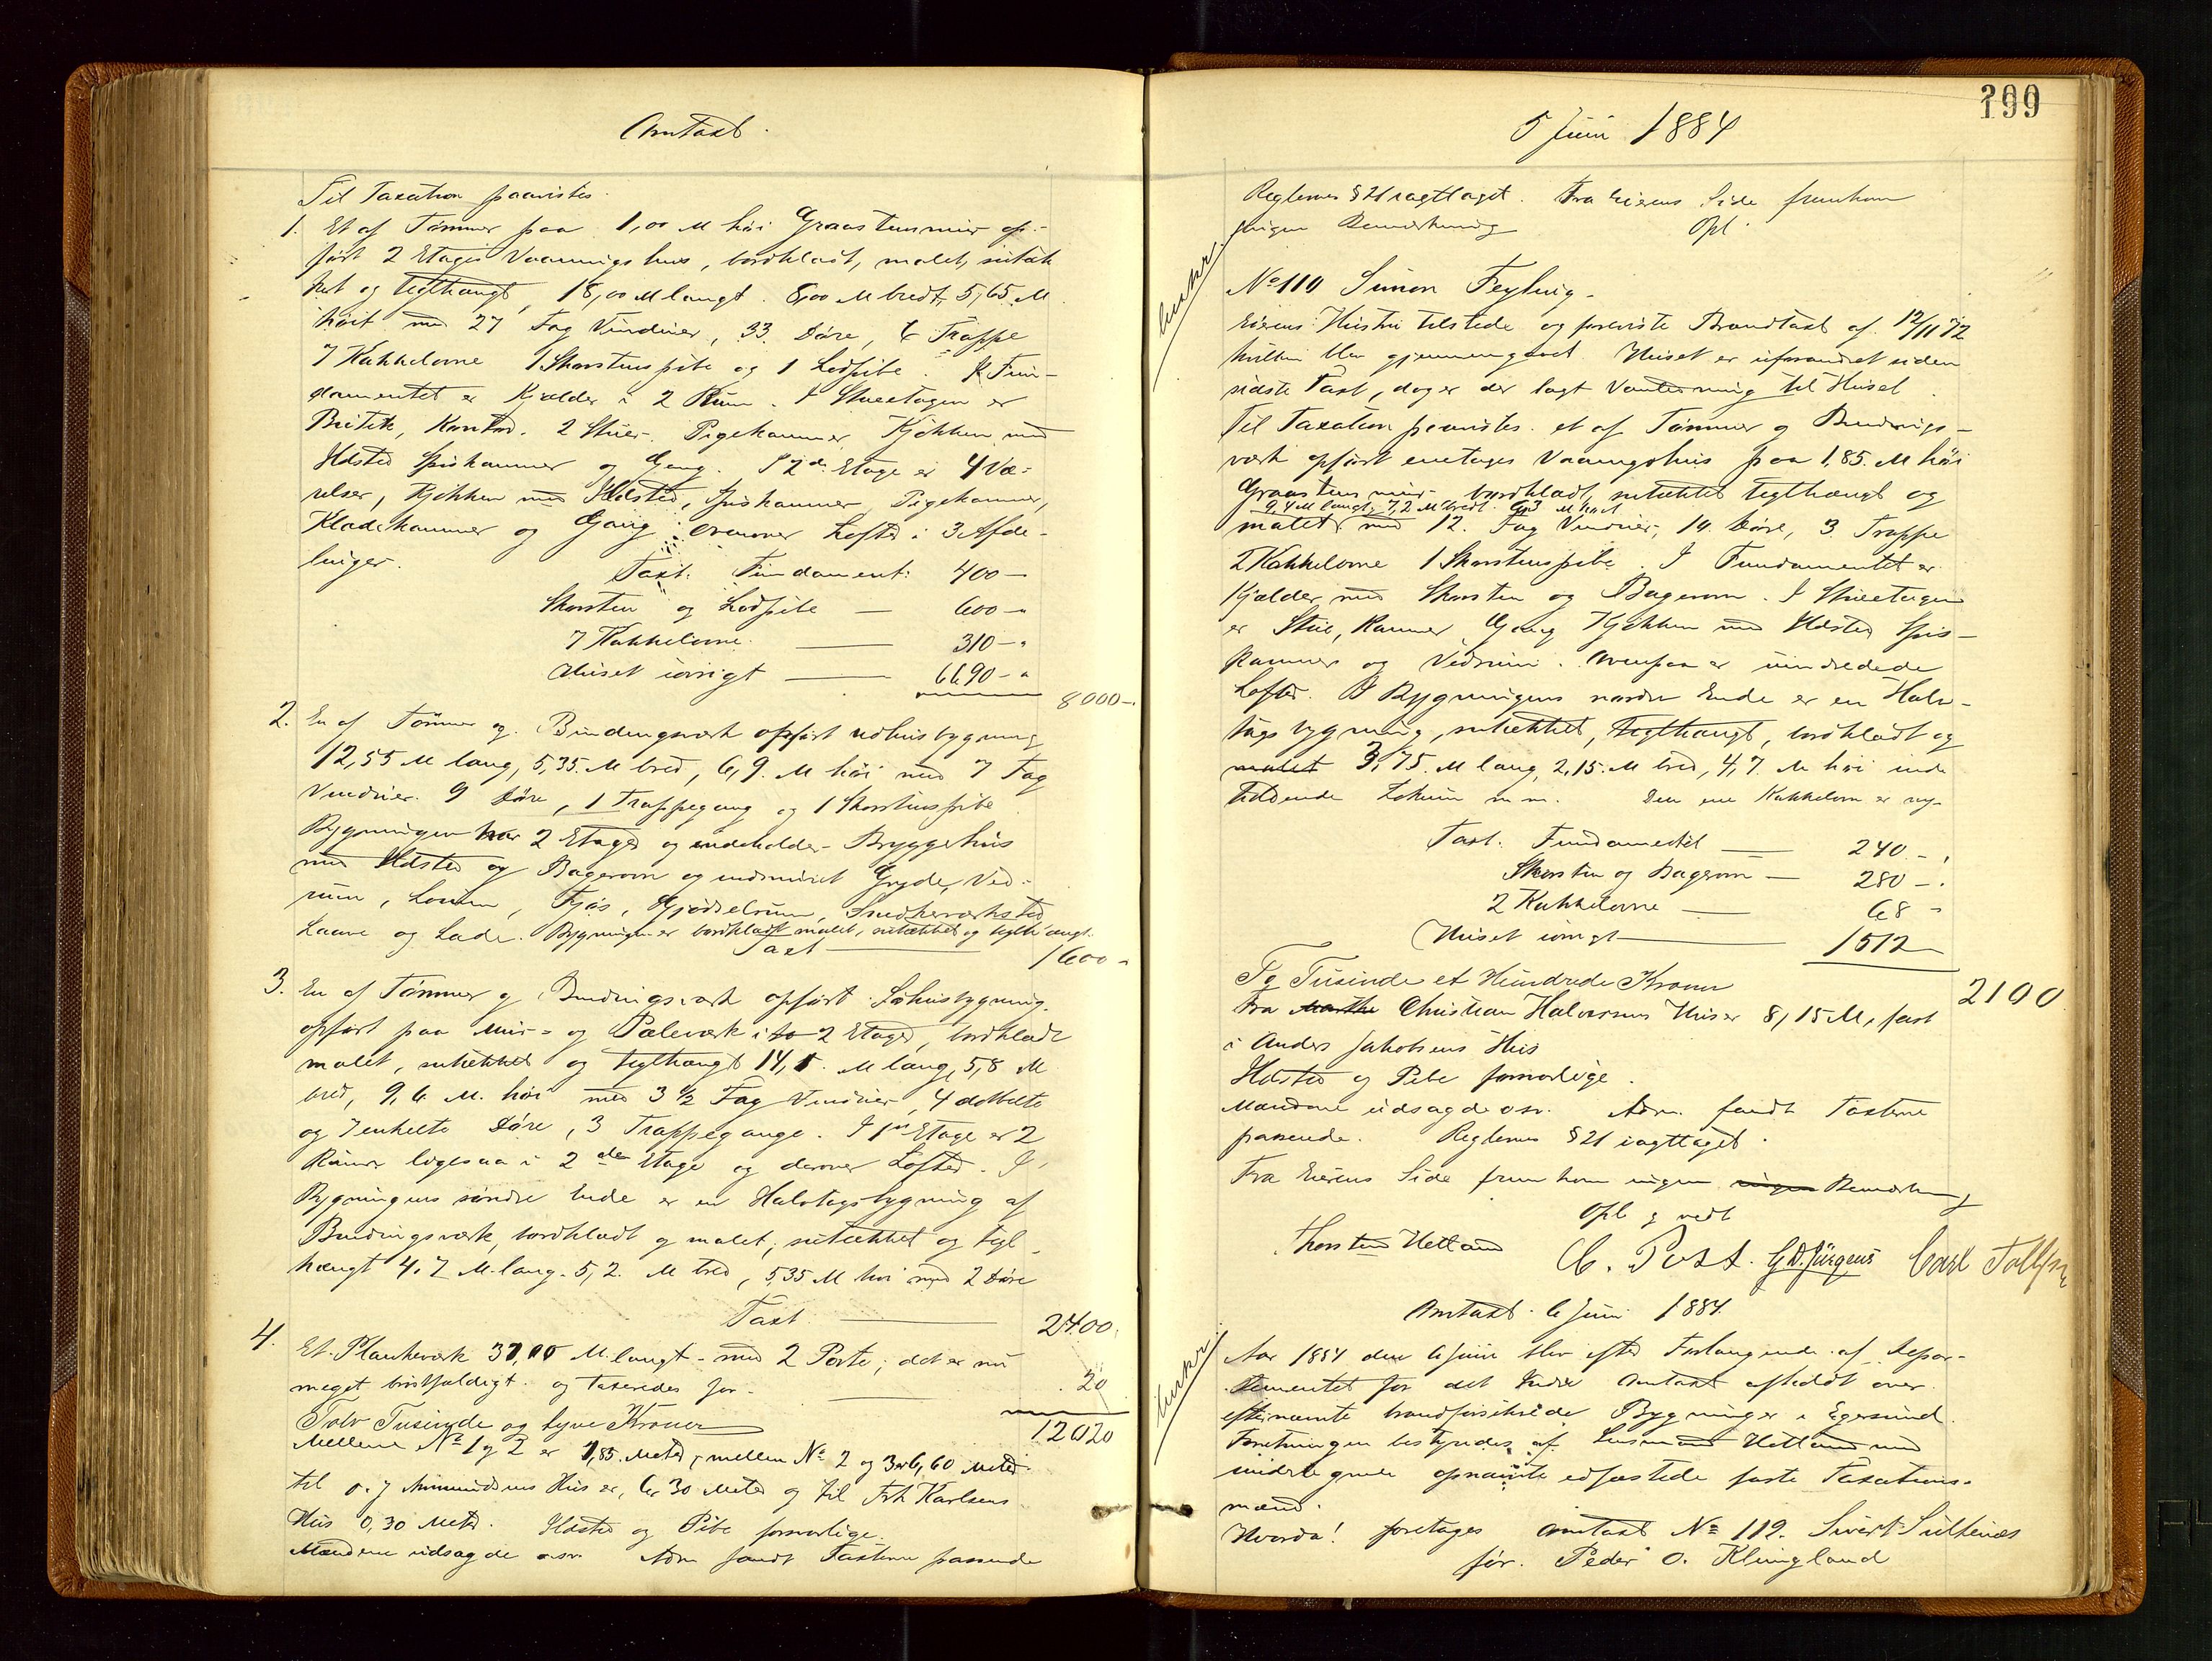 Omtaxt.
Til Taxation paavistes
1. Et af Tømmer paa 1,00 M høi Graastensmur op-
ført 2 Etages Vaaningshus, bordklædt, malet, sutæk
ket og teglhængt, 18,00 M langt. 8,00 M bredt, 5,65 M
høit med 27 Fag Vinduer, 33 Døre, 6 Trappe
7 Kakkelovne 1 Skorstenspibe og 1 Lodpibe. I Fun-
damentet er Kjælder i 2 Rum. I Stueetagen er
Butik, Kontor. 2 Stuer. Pigekammer Kjøkken med
Ildsted Spiskammer og Gang. I 2den Etage er 4 Væ-
relser, Kjøkken med Ildsted, Spiskammer Pigekammer,
Klædekammer og Gang. ovenover Lofted i 3 Afde-
linger.
Taxt: Fundament: 400 —
Skorsten og Lodpibe — 600 —
7 Kakkelovne — 310 —
Huset iøvrigt — 6690 —
8000 —
2. En af Tømmer og Bindingsværk opført udhusbygning
12,55 M lang, 5,35 M bred, 6,9. M høi med 7 Fag
Vinduer. 9 Døre, 1 Trappegang og 1 Skorstenspibe
Bygningen har 2 Etager og indeholder Bryggehus
med Ildsted og Bagerovn og indmuret Gryde, Ved-
rum, Lokum, Fjøs, Gjødselrum, Snedkerværksted
Laave og Lade. Bygningen er bordklædt malet, sutækket og teglhængt.
Taxt — 1600 —
3. En af Tømmer og Bindingsværk opført Søhusbygning
opført paa Mur- og Pæleværk i to 2 Etager, bordklædt
malet, sutækket og teglhængt 14,1. M lang, 5,8 M
bred, 9,6 M. høi med 3 1/2 Fag Vinduer, 4 dobbelte
og 7 enkelte Døre, 3 Trappegange. I 1ste Etage er 2
Rum ligesaa i 2den Etage og derover Lofted. I
Bygningens søndre Ende er en Halvtagsbygning af
Bindingsværk, bordklædt og malet, sutækket og tegl
hængt 4,7 M. lang. 5,2. M bred, 5,35 M høi med 2 Døre
Taxt — 2400
4. Et Plankeværk 37,00 M. langt med 2 Porte; det er nu
meget brøstfældigt og taxeredes for — 20
Tolv Tusinde og tyve Kroner 12020
Mellem No 1 og 2 er 1,85 Meter, mellem No 2 og 3 er 6,60 Meter
til O. J Amundsens Hus er 6,30 Meter og til Frk Karlsens
Hus 0,30 Meter. Ildsted og Pibe forsvarlige.
Mændene udsagde osv. Adm fandt Taxterne passende
199
5 Juni 1884
Reglernes § 21 iagttaget. Fra Eierens Side fremkom
ingen Bemærkning Opl
No 110 Simon Feyling.
Eierens Hustru tilstede og foreviste Brandtaxt af 12/11 72
hvilken blev gjennemgaaet. Huset er uforandret siden
sidste Taxt, dog er der lagt Vandledning til Huset
Til Taxation paavistes et af Tømmer og Bindings-
værk opført enetages Vaaningshus paa 1,85. M høi
Graastensmur bordklædt, sutækket teglhængt og
9,4 M langt, 7,2 M bredt 6,3 M høit
malet med 12. Fag Vinduer, 14 Døre, 3 Trappe
2 Kakkelovne 1 Skorstenspibe. I Fundamentet er
Kjælder med Skorsten og Bagerovn. I Stueetagen
er Stue, Kammer Gang Kjøkken med Ildsted Spis-
kammer og Vedrum. Ovenpaa er uindredede
Lofter. I Bygningens nordre Ende er en Halv-
tagsbygning, sutækket, teglhængt, bordklædt og
malet 3,75. M lang, 2,15. M bred, 4,7. M høi inde
holdende Lokum m.m. Den ene Kakkelovn er ny.
Taxt. Fundamentet — 240 —
Skorsten og Bagerovn — 280 —
2 Kakkelovne — 68 —
Huset iøvrigt — 1512
To Tusinde et Hundrede Kroner 2100
Fra Christian Halvorsens Hus er 8,15 M, fast
i Anders Jakobsens Hus
Ildsted og Pibe forsvarlige.
Mændene udsagde osv. Adm. fandt Taxterne
passende. Reglernes § 21 iagttaget.
Fra Eierens Side fremkom ingen ingen Bemærkning
Opl og vedt
Thorsten Hetland C. Post. G. D. Jürgens Carl Tollefsen
Omtaxt 6 Juni 1884.
Aar 1884 den 6 Juni blev efter Forlangende af Depar-
tementet for det Indre Omtaxt afholdt over
efternævnte brandforsikrede Bygninger i Egersund.
Forretningen bestyredes af Lensmand Hetland med
underskrevne opnævnte edfæstede faste Taxations-
mænd.
Hvorda! foretages Omtaxt No 112. Sivert Sultenæs
før. Peder O. Klungland